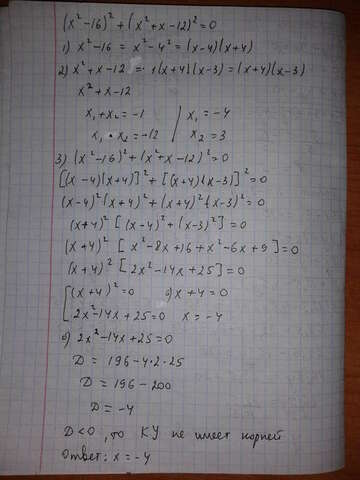 (x²-16)²+(x²+x-12)²=0
1) x²-16 = x²-4² = (x-4)(x+4)
2) x²+x-12 = 1(x+4)(x-3) = (x+4)(x-3)
x²+x-12
x₁+x₂=-1 / x₁=-4
x₁•x₂=-12 x₂=3
3) (x²-16)²+(x²+x-12)²=0
[(x-4)(x+4)]²+[(x+4)(x-3)]²=0
(x-4)²(x+4)²+(x+4)²(x-3)²=0
(x+4)²[(x-4)²+(x-3)²]=0
(x+4)²[x²-8x+16+x²-6x+9]=0
(x+4)²[2x²-14x+25]=0
[(x+4)²=0 а) x+4=0
2x²-14x+25=0 x=-4
б) 2x²-14x+25=0
D = 196-4•2•25
D = 196-200
D = -4
D<0, то КУ не имеет корней
Ответ: x=-4